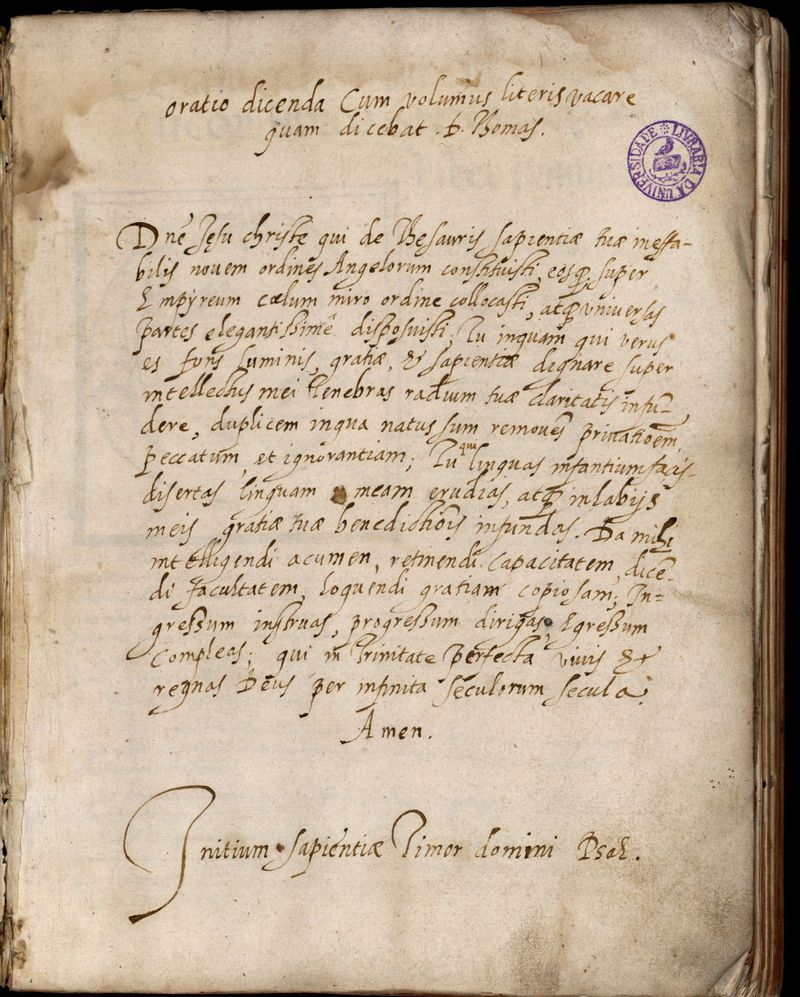 oratio dicenda Cum volumus literis vacare
quam dicebat .b. Thomas.
LIVRARIA DA UNIVERSIDADE
Dnẽ Jesu christe qui de Thesauris sapientiæ tuæ ineffa-
bilis novem ordines Angelorum constituisti, eosq̃ super
Empyreum cælum miro ordine collocasti, atq̃ universas
partes elegantissimẽ disposuisti, Tu inquam qui verus
es fons Luminis, gratiæ, & sapientiæ dignare super
intellectus mei Tenebras radium tuæ claritatis infũ-
dere, duplicem in qua natus sum removes privatioẽm
Peccatum, et ignorantiam; Tu qui linguas infantium facis
disertas linguam meam erudias, atq̃ in labijs
meis gratiæ tuæ benedictiõis infundas. Da mihi
intelligendi acumen, retinendi capacitatem, dicẽ-
di facultatem, loquendi gratiam copiosam; In-
gressum instruas, progressum dirigas, Egressum
Compleas; qui in Trinitate Perfecta vivis &
regnas Deus per infinita seculorum secula.
Amen.
Initium sapientiæ Timor domini Psal.